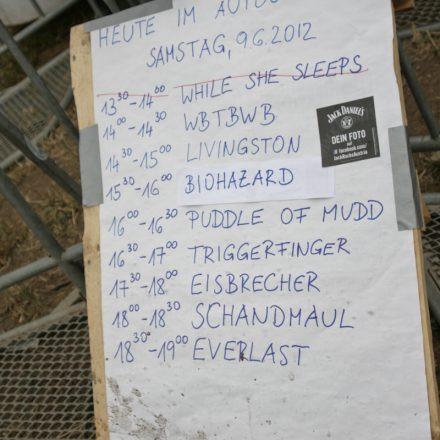 HEUTE IM
SAMSTAG, 9.6.2012
13³⁰-14⁰⁰ WHILE SHE SLEEPS
14⁰⁰-14³⁰ WBTBWB
14³⁰-15⁰⁰ LIVINGSTON
15³⁰-16⁰⁰ BIOHAZARD
16⁰⁰-16³⁰ PUDDLE OF MUDD
16³⁰-17⁰⁰ TRIGGERFINGER
17³⁰-18⁰⁰ EISBRECHER
18⁰⁰-18³⁰ SCHANDMAUL
18³⁰-19⁰⁰ EVERLAST
JACK DANIEL'S
DEIN FOTO
auf
facebook.com/
JackRocksAustria